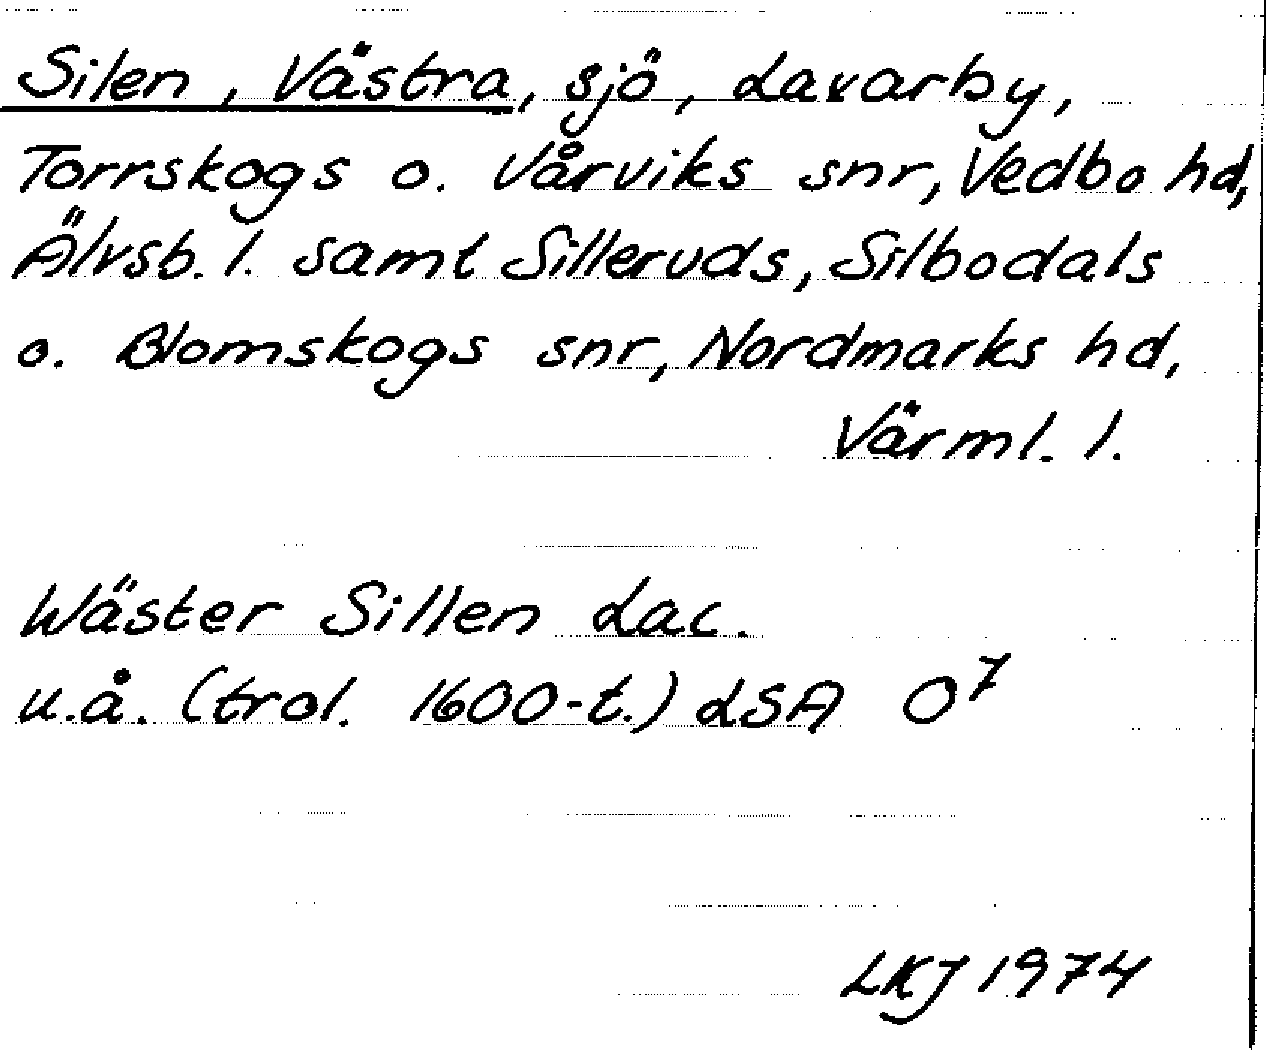 Silen, Västra, sjö, Lavarby,
Torrskogs o. Vårviks snr, Vedbo hd,
Älvsb. l. samt Silleruds, Silbodals
o. Blomskogs snr, Nordmarks hd,
Värml. l.
Wäster Sillen Lac.
u.å. (trol. 1600-t.) LSA O⁷
LKJ 1974